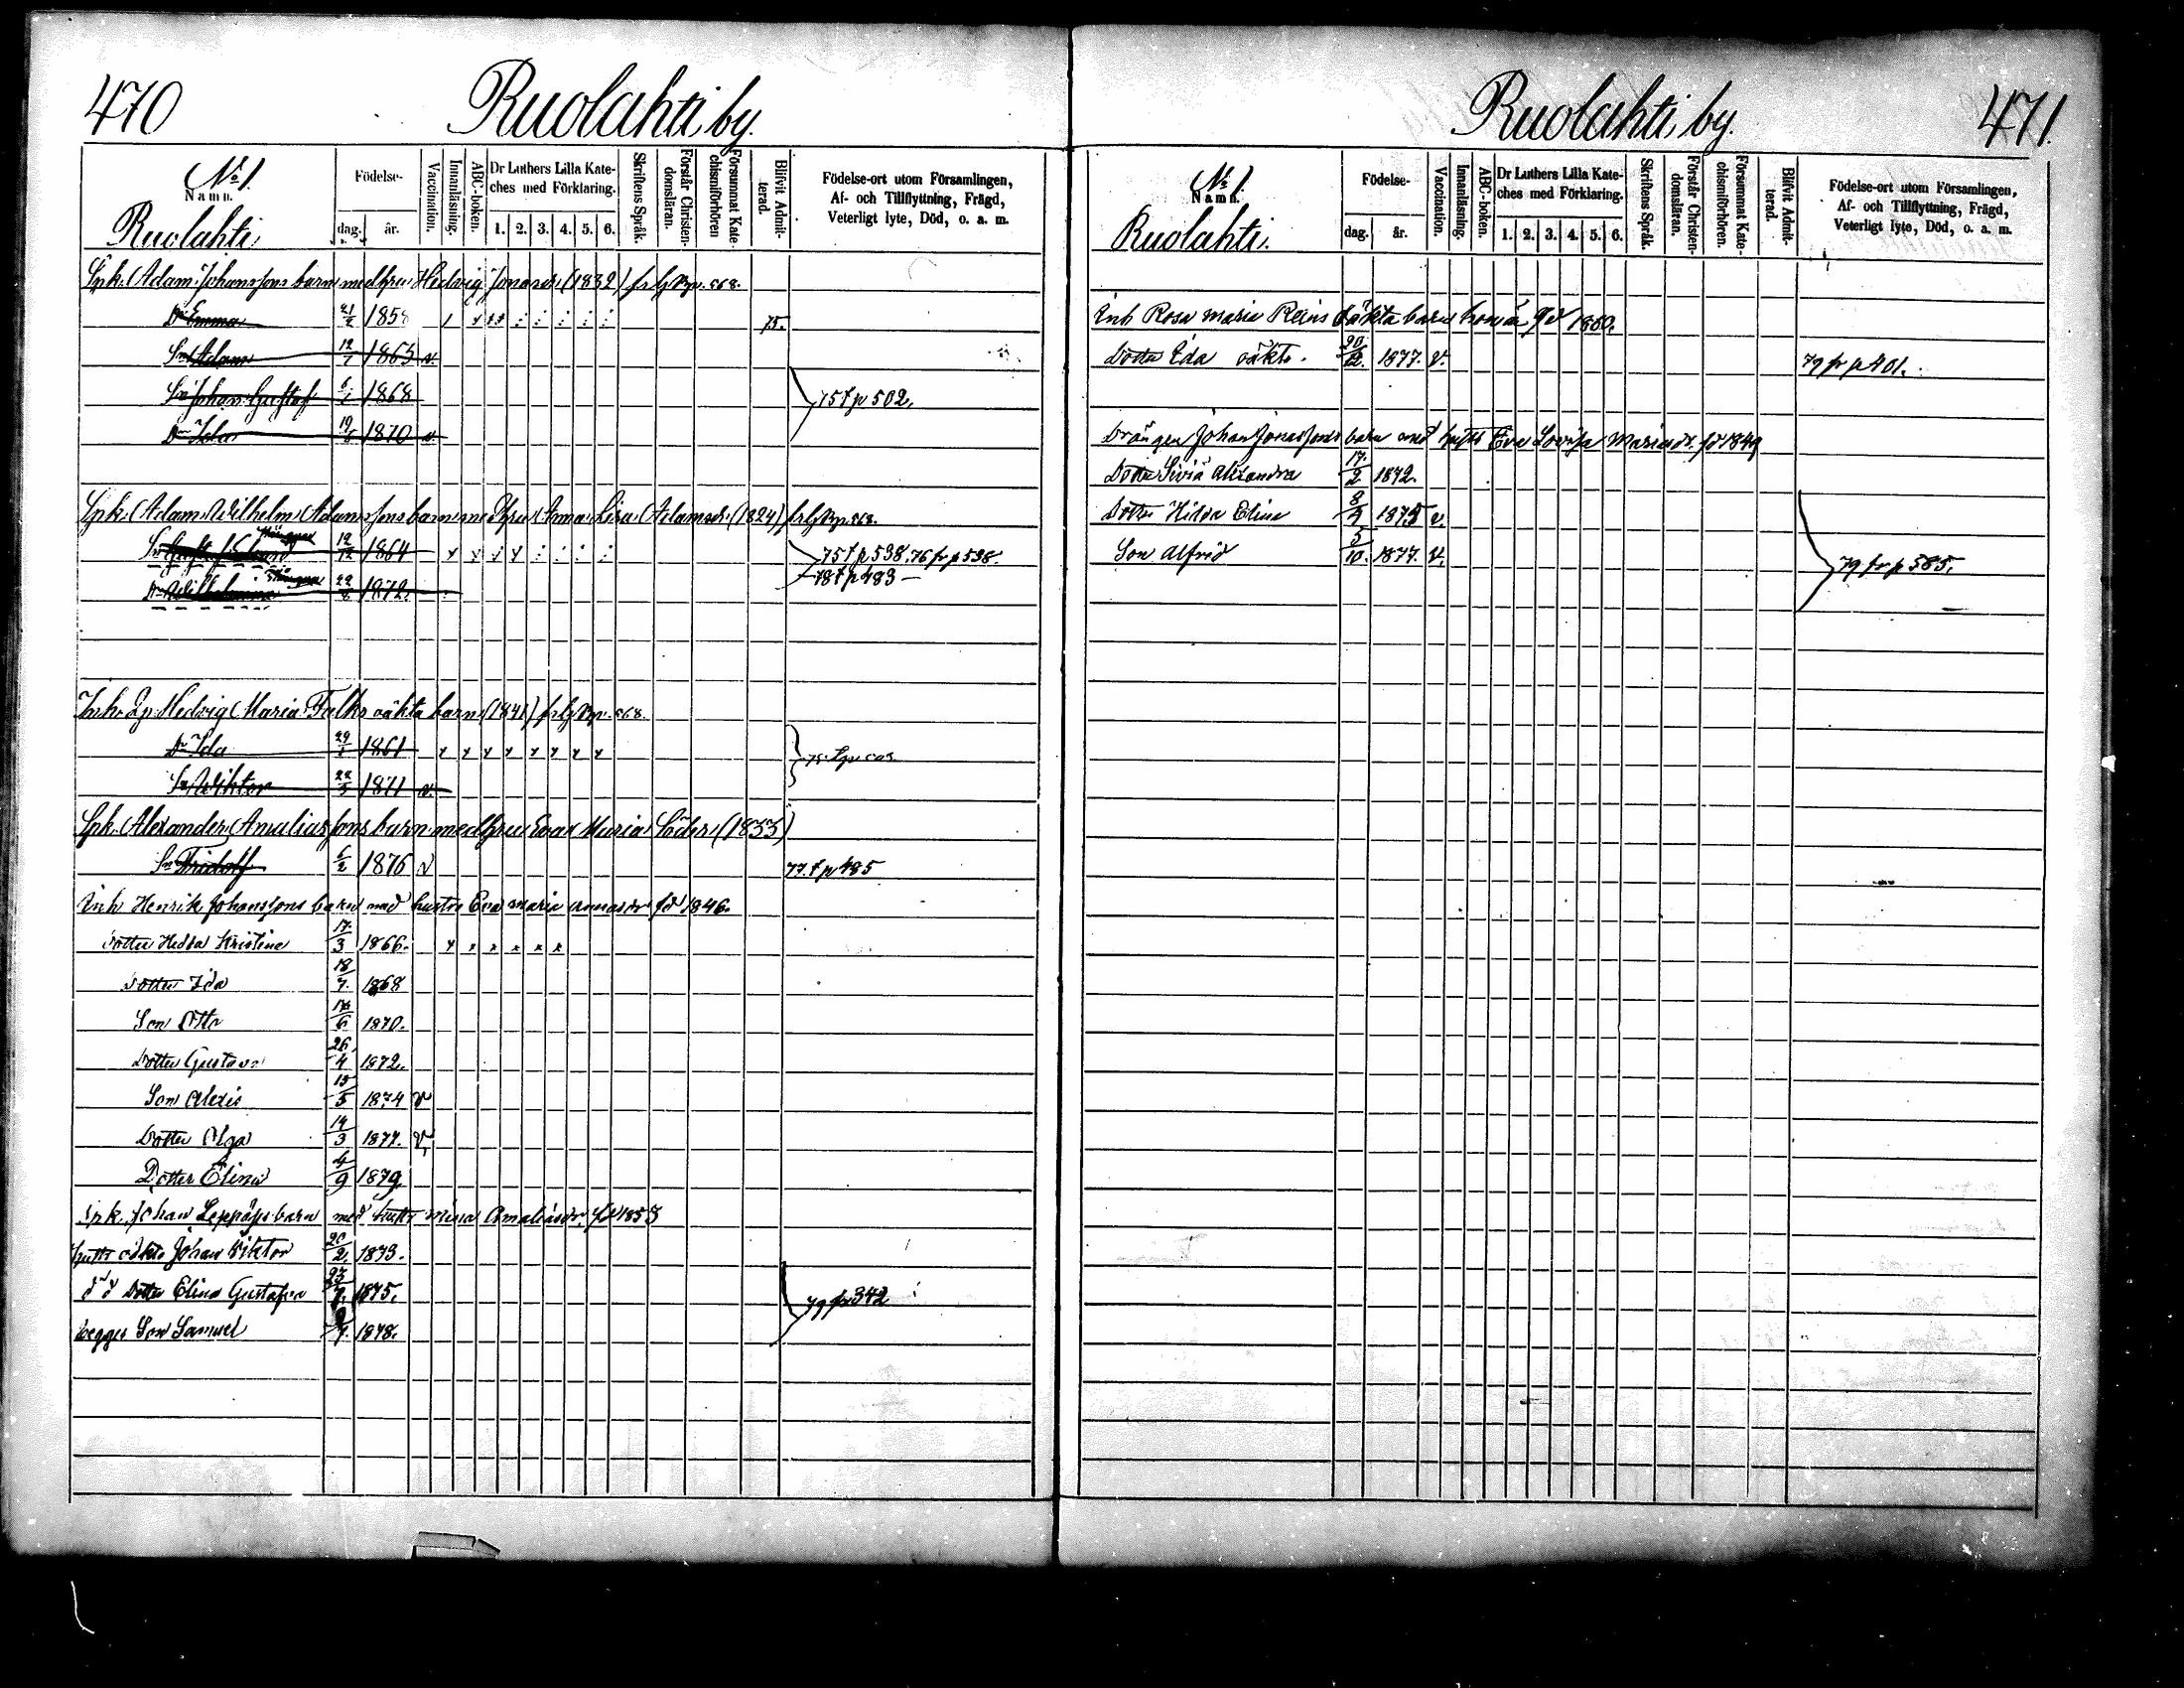 470
Ruolahti by.
No 1.
Namn.
Ruolahti
Födelse-
dag. år.
Vaccination.
Innanläsning.
ABC-boken.
Dr Luthers Lilla Kate-
ches med Förklaring.
1. 2. 3. 4. 5. 6.
Skriftens Språk.
Förstår Christen-
domsläran.
Försummat Kate-
chismiförhören
Blifvit Admit-
terad.
Födelse-ort utom Församlingen,
Af- och Tillflyttning, Frägd,
Veterligt lyte, Död, o. a. m.
Spk. Adam Johanssons barn med hru Hedvig Jonasdr (1832)
Dr Emma 21/2 1858 75.
Sn Adam 12/7 1865 v.
Sn Johan Gustaf 6/1 1868 75 t p 502.
Dr Ida 19/8 1870 v.
Spk. Adam Wilhelm Adamssons barn med hru Anna Lisa Adamsdr (1824)
Sn 12/12 1864 75 t p 538. 76 fr p 538.
78 t p 483
Dr Wilhelmina 22/8 1872.
Inh. Hedvig Maria Falks oäkta barn (1841)
Dr Ida 29/1 1861 x x x x x x x x
Sn Wiktor 22/5 1871 v.
Spk. Alexander Amaliassons barn med hru Eva Maria Söder (1855)
Sn Fridolf 6/2 1876 v 77. t p 485
Inh Henrik Johanssons barn med hustru Eva Maria Annasdr fd 1846.
Dotter Hedda Kristina 17/3 1866. x x x x x x
Dotter Ida 18/7 1868
Son Otto 16/6 1870.
Dotter Gustava 26/4 1872.
Son Alexis 15/5 1874 v
Dotter Olga 14/3 1877. v.
Dotter Elina 4/9 1879
Spk. Johan Leppäs barn med hustr Miina Amaliasdr fd 1855
hustr oäkta Johan Viktor 20/2 1873.
d d Dotter Elina Gustafva 23/7. 1875. 79 fr 342
begges Son Samuel 1878.
Ruolahti by.
471.
No 1.
Namn.
Ruolahti.
Födelse-
dag. år.
Vaccination.
Innanläsning.
ABC-boken.
Dr Luthers Lilla Kate-
ches med Förklaring.
1. 2. 3. 4. 5. 6.
Skriftens Språk.
Förstår Christen-
domsläran.
Försummat Kate-
chismiförhören.
Blifvit Admit-
terad.
Födelse-ort utom Församlingen,
Af- och Tillflyttning, Frägd,
Veterligt lyte, Död, o. a. m.
Inh Rosa Maria Reins oäkta barn 1850.
Dotter Ida oäkta. 20/2. 1877. v. 79 fr p 401.
Drängen Johan Jonassons barn med hustr Eva Lovisa Mariasdr fd 1849
Dotter Sivia Alexandra 17/2 1872.
Dotter Hilda Elina 1875 v.
Son Alfrid 5/10. 1877. v. 79 fr p 585.